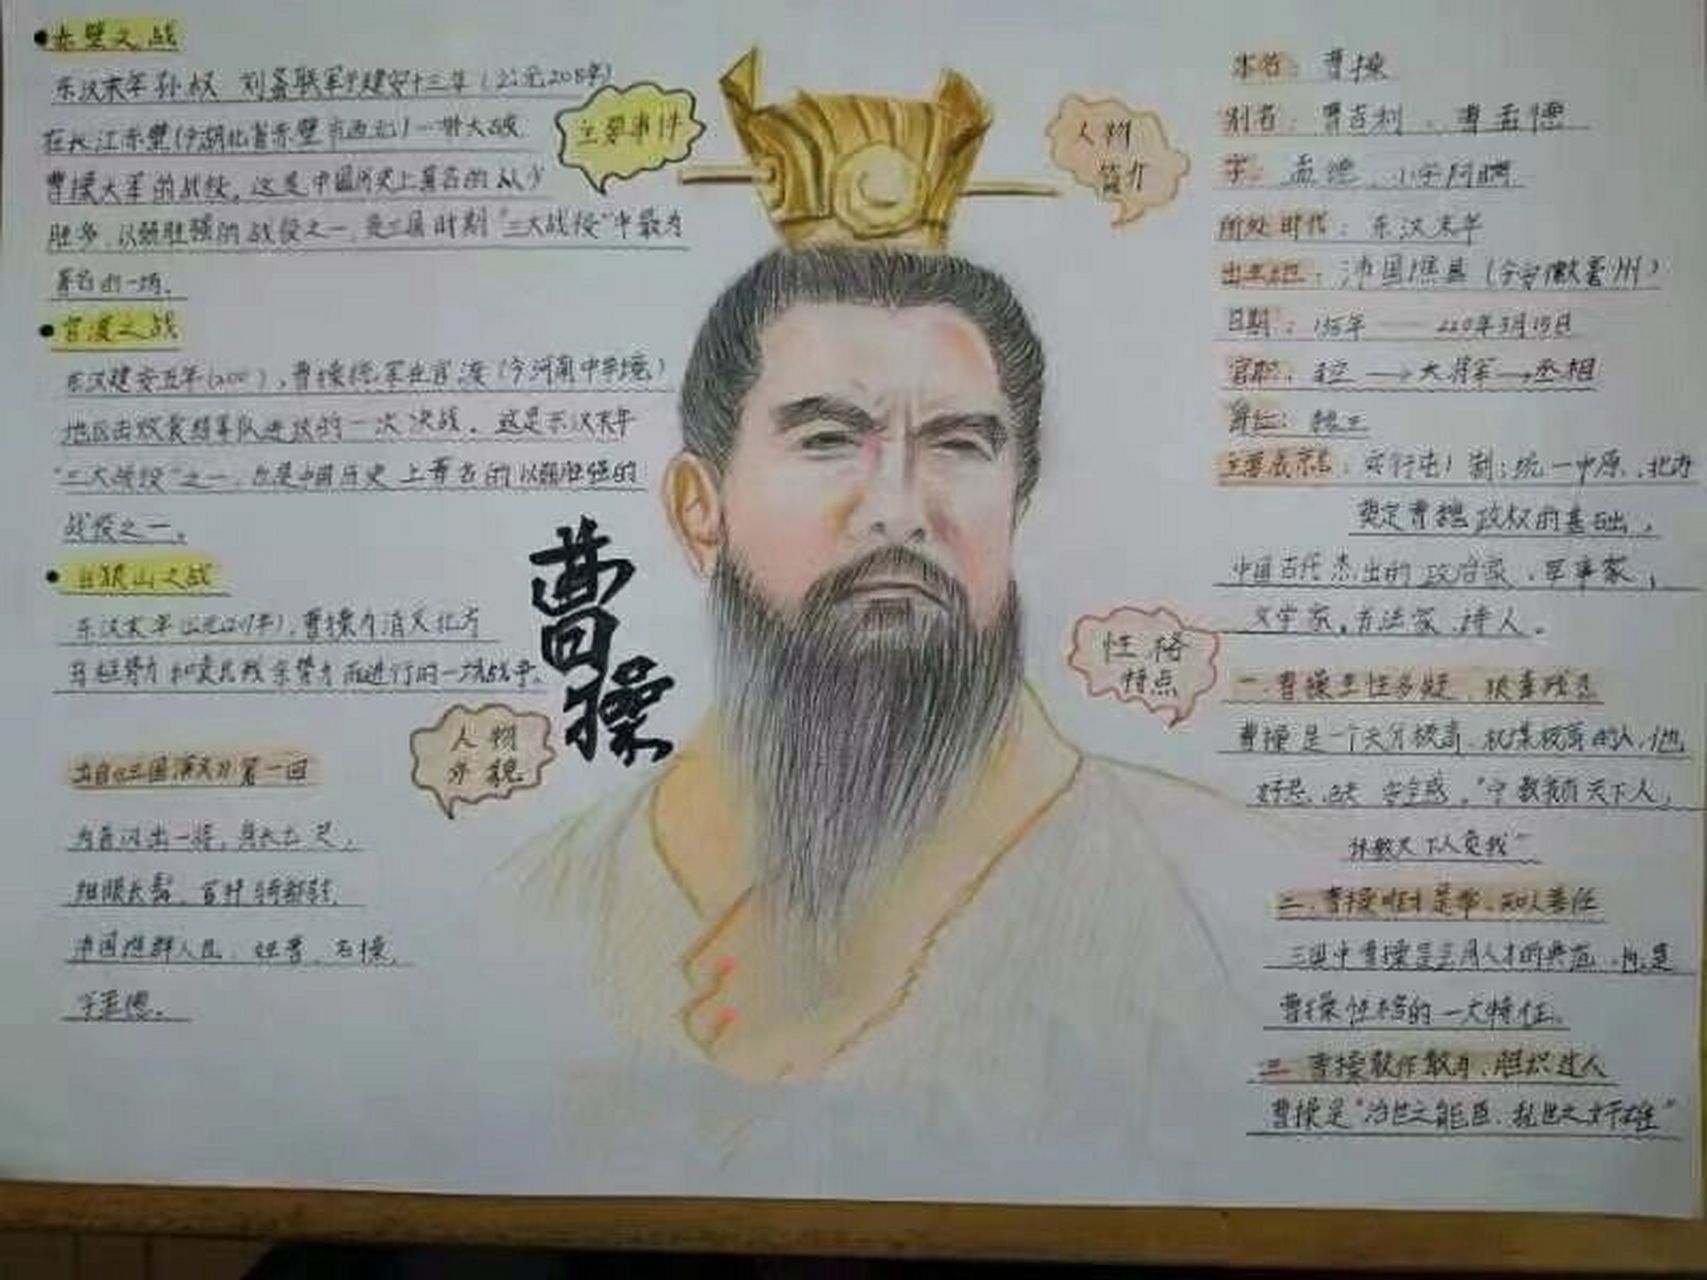 赤壁之战
东汉末年孙权 刘备联军于建安十三年(公元208年)
在长江赤壁(今湖北省赤壁市西北)一带大破
曹操大军的战役。这是中国历史上著名的以少
胜多,以弱胜强的战役之一,是三国时期"三大战役"中最为
著名的一场。
官渡之战
东汉建安五年(200),曹操统军在官渡(今河南中牟境)
地区击败袁绍军队进攻的一次决战。这是东汉末年
"三大战役"之一,也是中国历史上著名的以弱胜强的
战役之一。
白狼山之战
东汉末年(公元207年),曹操为消灭北方
乌桓势力和袁氏残余势力而进行的一场战争。
主要事件
曹操
人物
外貌
出自《三国演义》第一回
为首闪出一将,身长七尺,
细眼长髯,官拜骑都尉,
沛国谯郡人也,姓曹,名操,
字孟德。
人物
简介
本名:曹操
别名:曹吉利、曹孟德
字:孟德,小字阿瞒
所处时代:东汉末年
出生地:沛国谯县(今安徽亳州)
日期:155年——220年3月15日
官职: →大将军→丞相
爵位:魏王
主要成就:实行屯 制;统一中原、北方
奠定曹魏政权的基础,
中国古代杰出的政治家、军事家,
文学家,书法家,诗人。
性格
特点
一.曹操生性多疑,狡诈残忍
曹操是一个天分极高,权谋极深的人,他
奸忌,缺 安全感,"宁教我负天下人,
休教天下人负我"
二.曹操唯才是举,知人善任
三国中曹操是 用人才的典范, 是
曹操性格的一大特征。
三.曹操敢作敢为,胆识过人
曹操是"治世之能臣,乱世之奸雄"